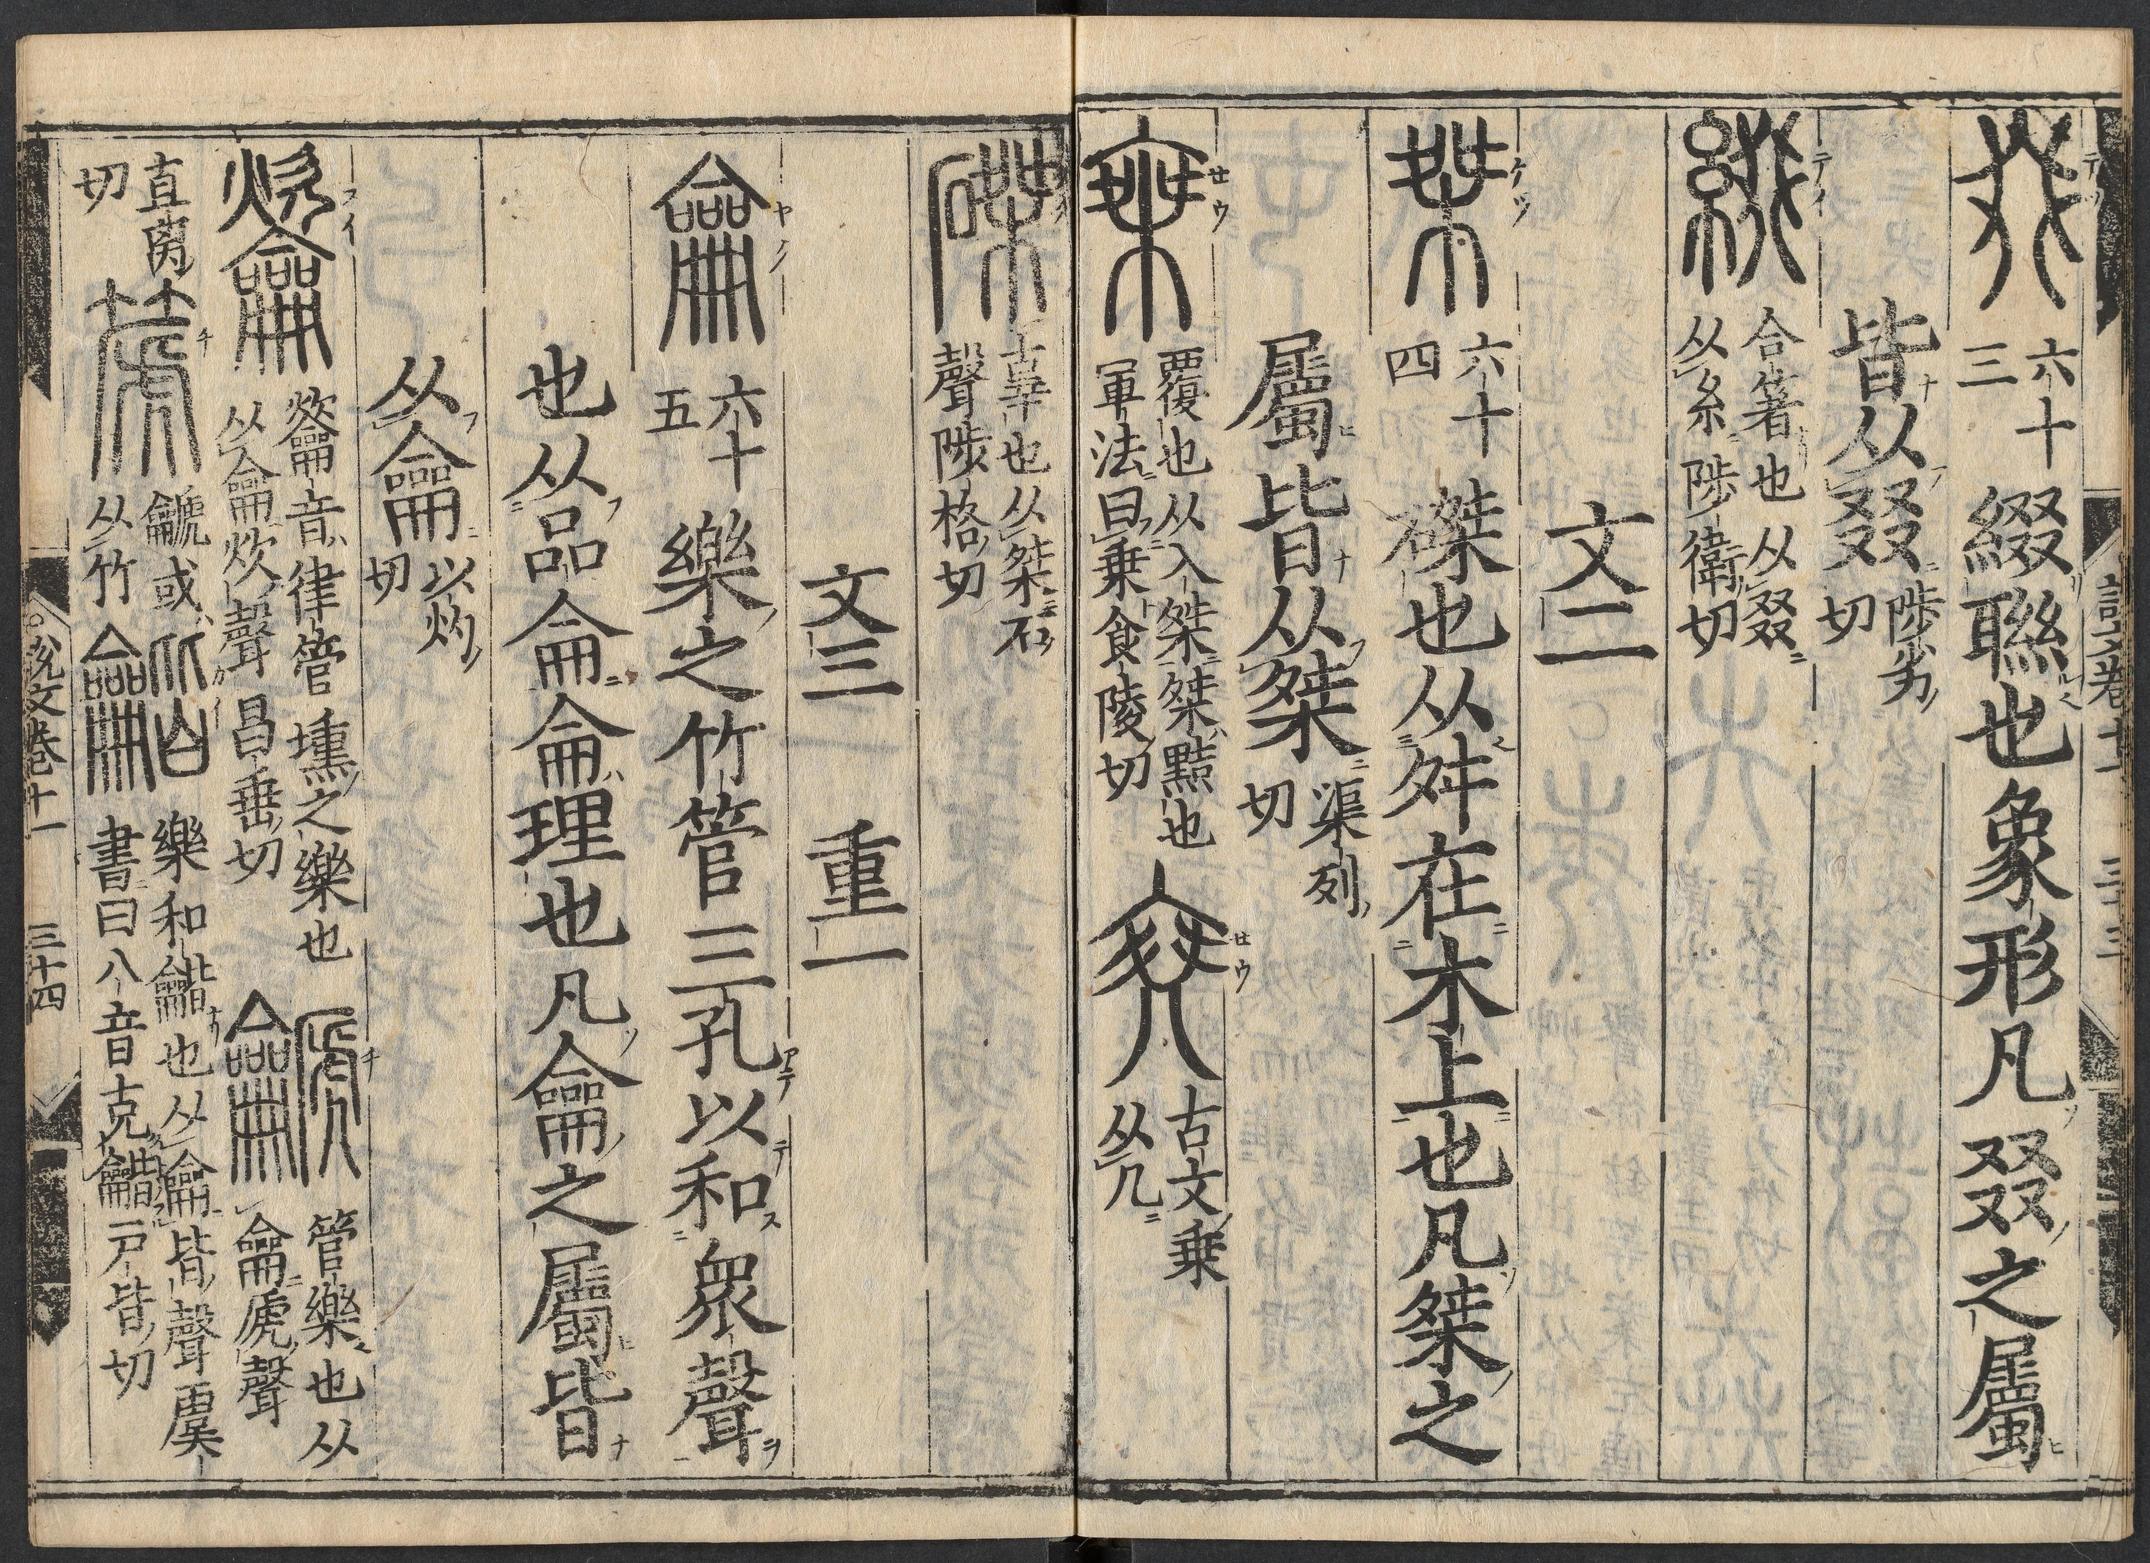 叕 六十三 綴聯也象形凡叕之屬
皆从叕 陟劣切
綴 合箸也从叕从糸陟衛切
文二
桀 六十四 磔也从舛在木上也凡桀之
屬皆从桀 渠列切
椉 覆也从入桀桀黠也軍法曰乗食陵切 古文乗从几
磔 辜也从桀石聲陟格切
文三 重一
龠 六十五 樂之竹管三孔以和衆聲
也从品侖侖理也凡龠之屬皆
从龠 以灼切
龡 龡音律管壎之樂也从龠炊聲昌垂切 龥 管樂也从龠虒聲
直离切 篪 䶵或从竹 龤 樂和龤也从龠皆聲虞書曰八音克龤戸皆切
説文卷十一 三十四